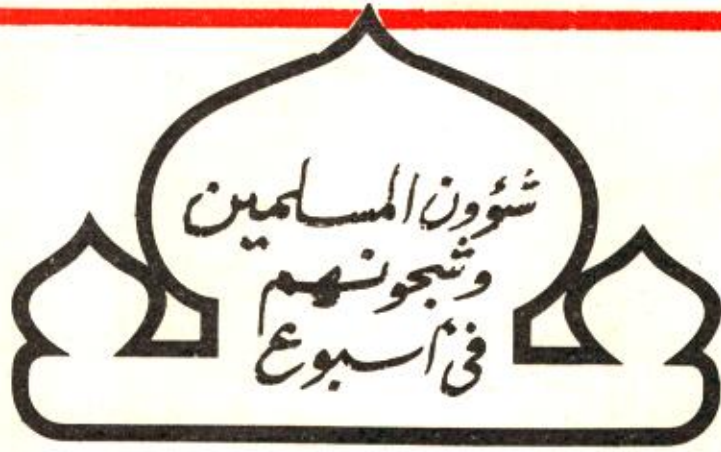 شؤون المسلمين
وشجونهم
في أسبوع